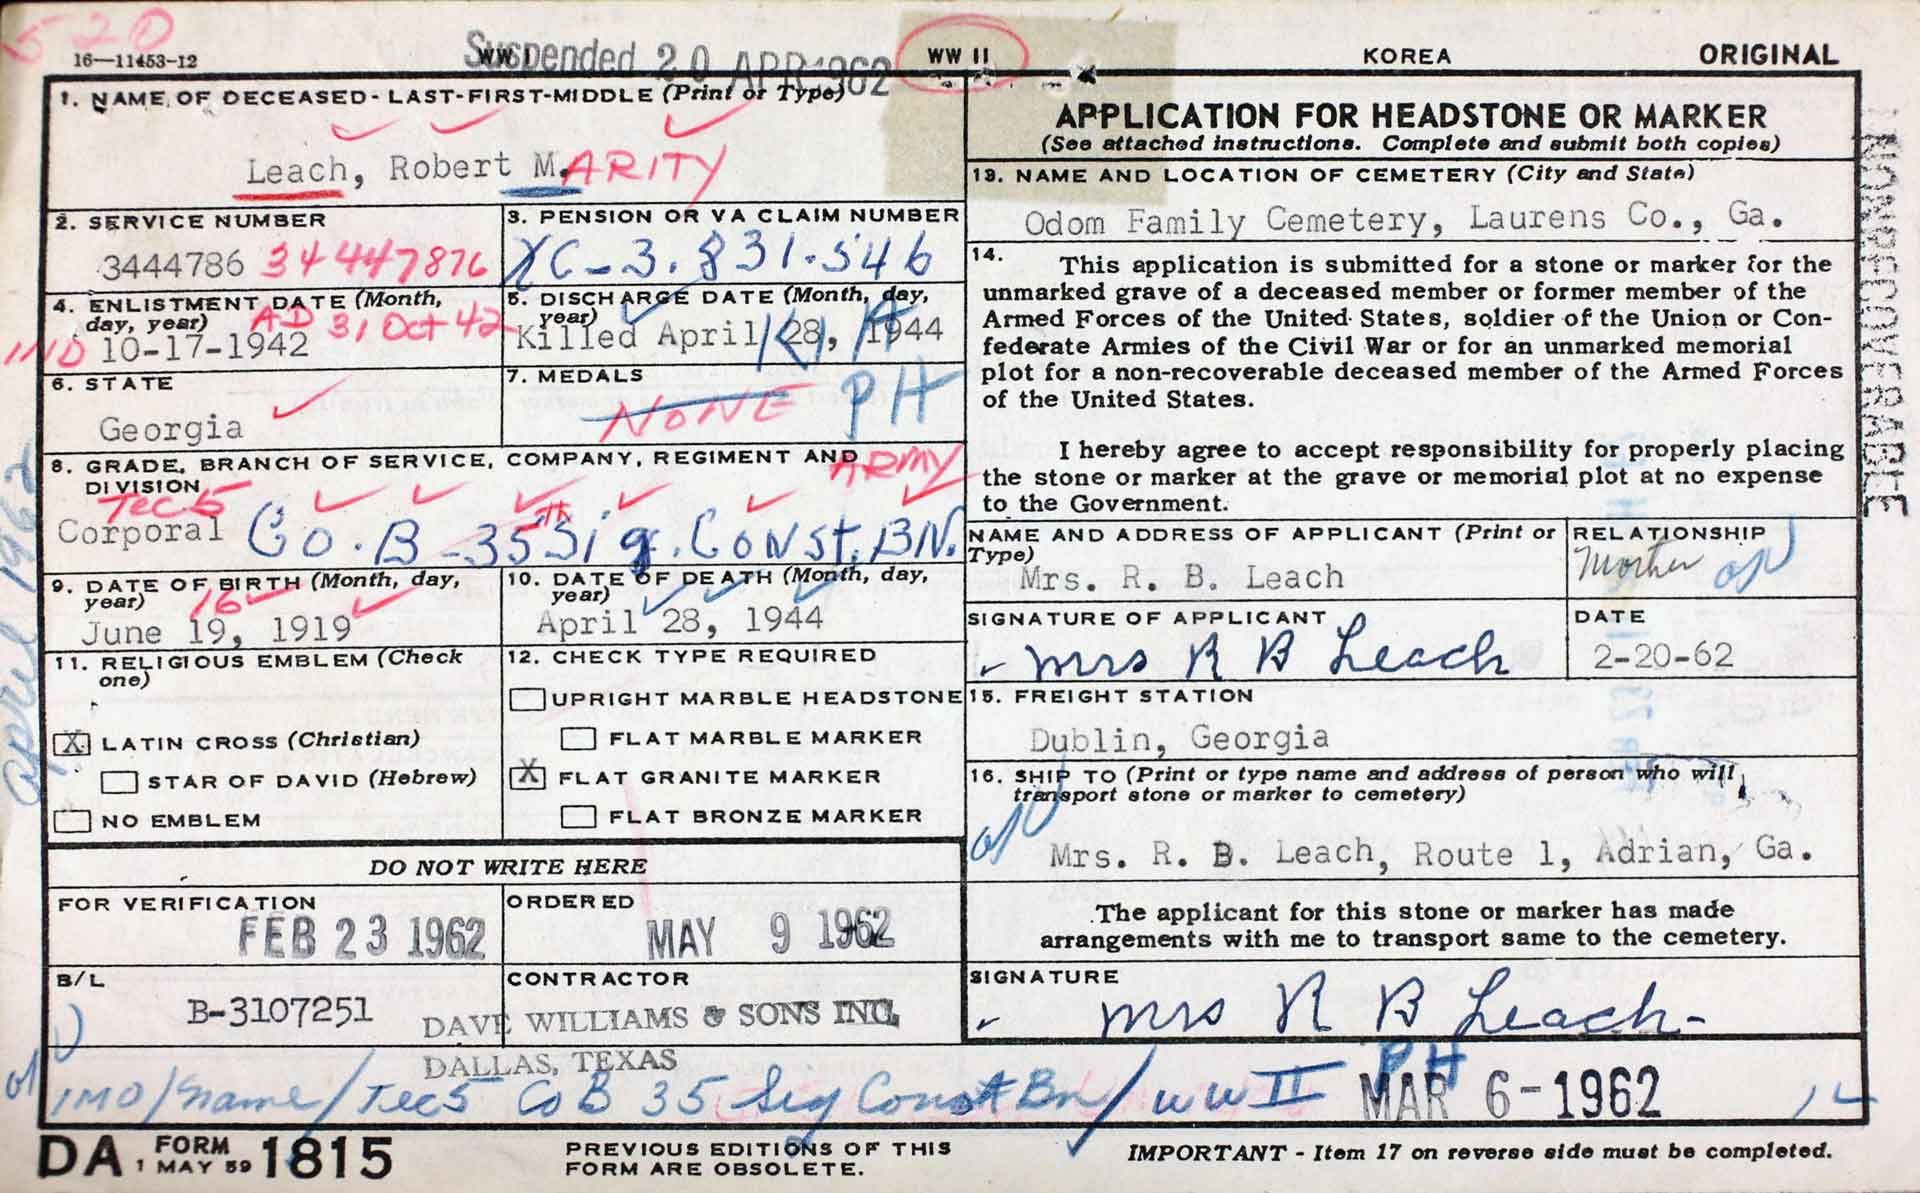 520
16—11453-12
WW I
Suspended 20 APR 1962
WW II
KOREA
ORIGINAL
1. NAME OF DECEASED - LAST-FIRST-MIDDLE (Print or Type)
Leach, Robert M. ARITY
2. SERVICE NUMBER
3444786 34 447876
3. PENSION OR VA CLAIM NUMBER
XC-3.831.546
4. ENLISTMENT DATE (Month,
day, year)
AD 31 Oct 42
IND 10-17-1942
5. DISCHARGE DATE (Month, day,
year)
Killed April 28, 1944
KIA
6. STATE
Georgia
7. MEDALS
NONE PH
8. GRADE, BRANCH OF SERVICE, COMPANY, REGIMENT AND
DIVISION
ARMY
Tec 5
Corporal Co. B - 35th Sig. Const. BN.
9. DATE OF BIRTH (Month, day,
year)
16
June 19, 1919
10. DATE OF DEATH (Month, day,
year)
April 28, 1944
11. RELIGIOUS EMBLEM (Check
one)
X LATIN CROSS (Christian)
STAR OF DAVID (Hebrew)
NO EMBLEM
12. CHECK TYPE REQUIRED
UPRIGHT MARBLE HEADSTONE
FLAT MARBLE MARKER
X FLAT GRANITE MARKER
FLAT BRONZE MARKER
DO NOT WRITE HERE
FOR VERIFICATION
FEB 23 1962
ORDERED
MAY 9 1962
B/L
B-3107251
CONTRACTOR
DAVE WILLIAMS & SONS INC.
DALLAS, TEXAS
APPLICATION FOR HEADSTONE OR MARKER
(See attached instructions. Complete and submit both copies)
13. NAME AND LOCATION OF CEMETERY (City and State)
Odom Family Cemetery, Laurens Co., Ga.
14. This application is submitted for a stone or marker for the
unmarked grave of a deceased member or former member of the
Armed Forces of the United States, soldier of the Union or Con-
federate Armies of the Civil War or for an unmarked memorial
plot for a non-recoverable deceased member of the Armed Forces
of the United States.
I hereby agree to accept responsibility for properly placing
the stone or marker at the grave or memorial plot at no expense
to the Government.
NAME AND ADDRESS OF APPLICANT (Print or
Type)
Mrs. R. B. Leach
RELATIONSHIP
Mother
SIGNATURE OF APPLICANT
Mrs R B Leach
DATE
2-20-62
15. FREIGHT STATION
Dublin, Georgia
16. SHIP TO (Print or type name and address of person who will
transport stone or marker to cemetery)
Mrs. R. B. Leach, Route 1, Adrian, Ga.
The applicant for this stone or marker has made
arrangements with me to transport same to the cemetery.
SIGNATURE
Mrs R B Leach
IMO/name/Tec5 Co B 35 Sig Const Bn/WW II PH
MAR 6-1962
NONRECOVERABLE
April 1962
DA FORM 1815
1 MAY 59
PREVIOUS EDITIONS OF THIS
FORM ARE OBSOLETE.
IMPORTANT - Item 17 on reverse side must be completed.